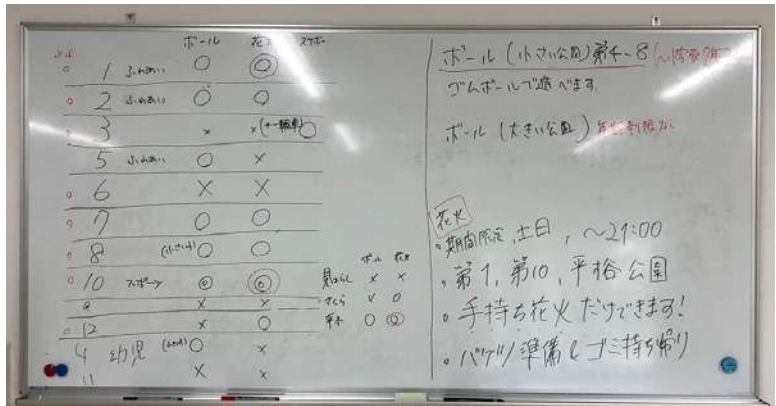 ボール 花火 スケボー
○ 1 ふれあい ○ ◎
○ 2 ふれあい ○ ○
3 × ×(+一輪車) ○
5 ふれあい ○ ×
○ 6 × ×
○ 7 ○ ○
○ 8 (小さい子) ○ ○
○ 10 スポーツ ◎ ◎
9 × ×
○ 12 × ○
4 幼児 ○ ×
11 × ×
ボール 花火
見はらし × ×
さくら × ○
○ ◎
ボール (小さい公園) 第4~8
ゴムボールで遊べます
ボール (大きい公園) 年齢制限ない
花火
・期間限定, 土日, ~21:00
・第1, 第10, 平裕公園
・手持ち花火だけできます!
・バケツ準備&ゴミ持ち帰り